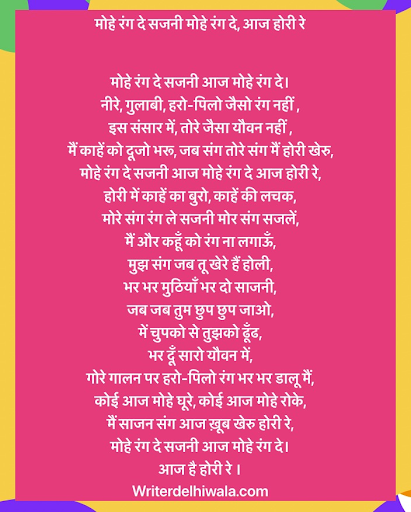 मोहे रंग दे सजनी मोहे रंग दे, आज होरी रे
मोहे रंग दे सजनी आज मोहे रंग दे।
नीरे, गुलाबी, हरो-पिलो जैसो रंग नहीं ,
इस संसार में, तोरे जैसा यौवन नहीं ,
मैं काहें को दूजो भरू, जब संग तोरे संग मैं होरी खेरु,
मोहे रंग दे सजनी आज मोहे रंग दे आज होरी रे,
होरी में काहें का बुरो, काहें की लचक,
मोरे संग रंग ले सजनी मोर संग सजलें,
मैं और कहूँ को रंग ना लगाऊँ,
मुझ संग जब तू खेरे हैं होली,
भर भर मुठियाँ भर दो साजनी,
जब जब तुम छुप छुप जाओ,
में चुपको से तुझको ढूँढ,
भर दूँ सारो यौवन में,
गोरे गालन पर हरो-पिलो रंग भर भर डालू मैं,
कोई आज मोहे घूरे, कोई आज मोहे रोके,
मैं साजन संग आज ख़ूब खेरु होरी रे,
मोहे रंग दे सजनी आज मोहे रंग दे।
आज है होरी रे ।
Writerdelhiwala.com